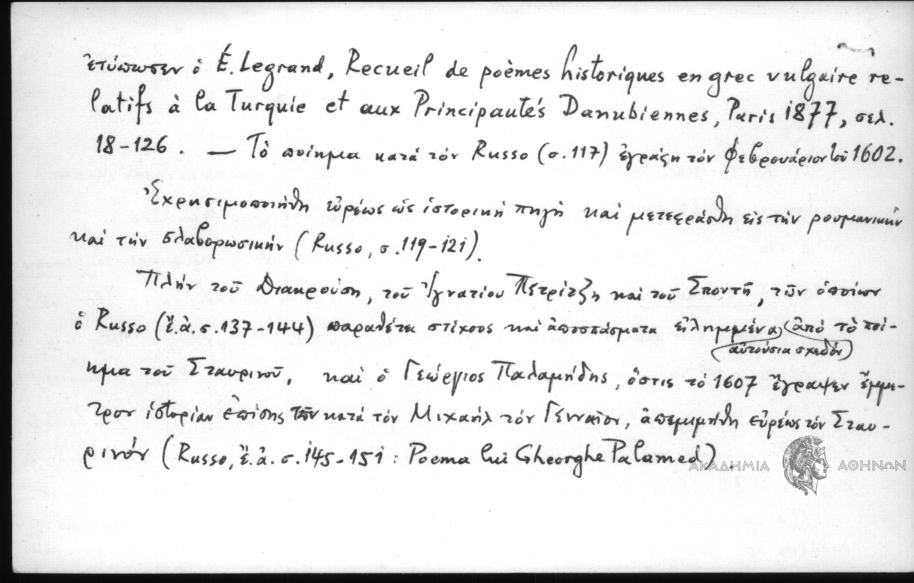 ἐτύπωσεν ὁ É. Legrand, Recueil de poèmes historiques en grec vulgaire re-
latifs à la Turquie et aux Principautés Danubiennes, Paris 1877, σελ.
18-126. — Τὸ ποίημα κατὰ τὸν Russo (σ. 117) ἐγράφη τὸν Φεβρουάριον τοῦ 1602.
Ἐχρησιμοποιήθη εὐρέως ὡς ἱστορικὴ πηγὴ καὶ μετεφράσθη εἰς τὴν ρουμανικὴν
καὶ τὴν σλαβορωσικήν (Russo, σ. 119-121).
Πλὴν τοῦ Διακρούση, τοῦ Ἰγνατίου Πετρίτζη καὶ τοῦ Σποντῆ, τῶν ὁποίων
ὁ Russo (ἔ.ἀ. σ. 137-144) παραθέτει στίχους καὶ ἀποσπάσματα εἰλημμένα (ἀπὸ τὸ ποί-
(αὐτούσια σχεδόν)
ημα τοῦ Σταυρινοῦ, καὶ ὁ Γεώργιος Παλαμήδης, ὅστις τὸ 1607 ἔγραψεν ἔμμε-
τρον ἱστορίαν ἐπίσης τῶν κατὰ τὸν Μιχαὴλ τὸν Γενναῖον, ἀπεμιμήθη εὐρέως τὸν Σταυ-
ρινόν (Russo, ἔ.ἀ. σ. 145-151: Poema lui Gheorghe Palamed).
ΑΚΑΔΗΜΙΑ ΑΘΗΝΩΝ